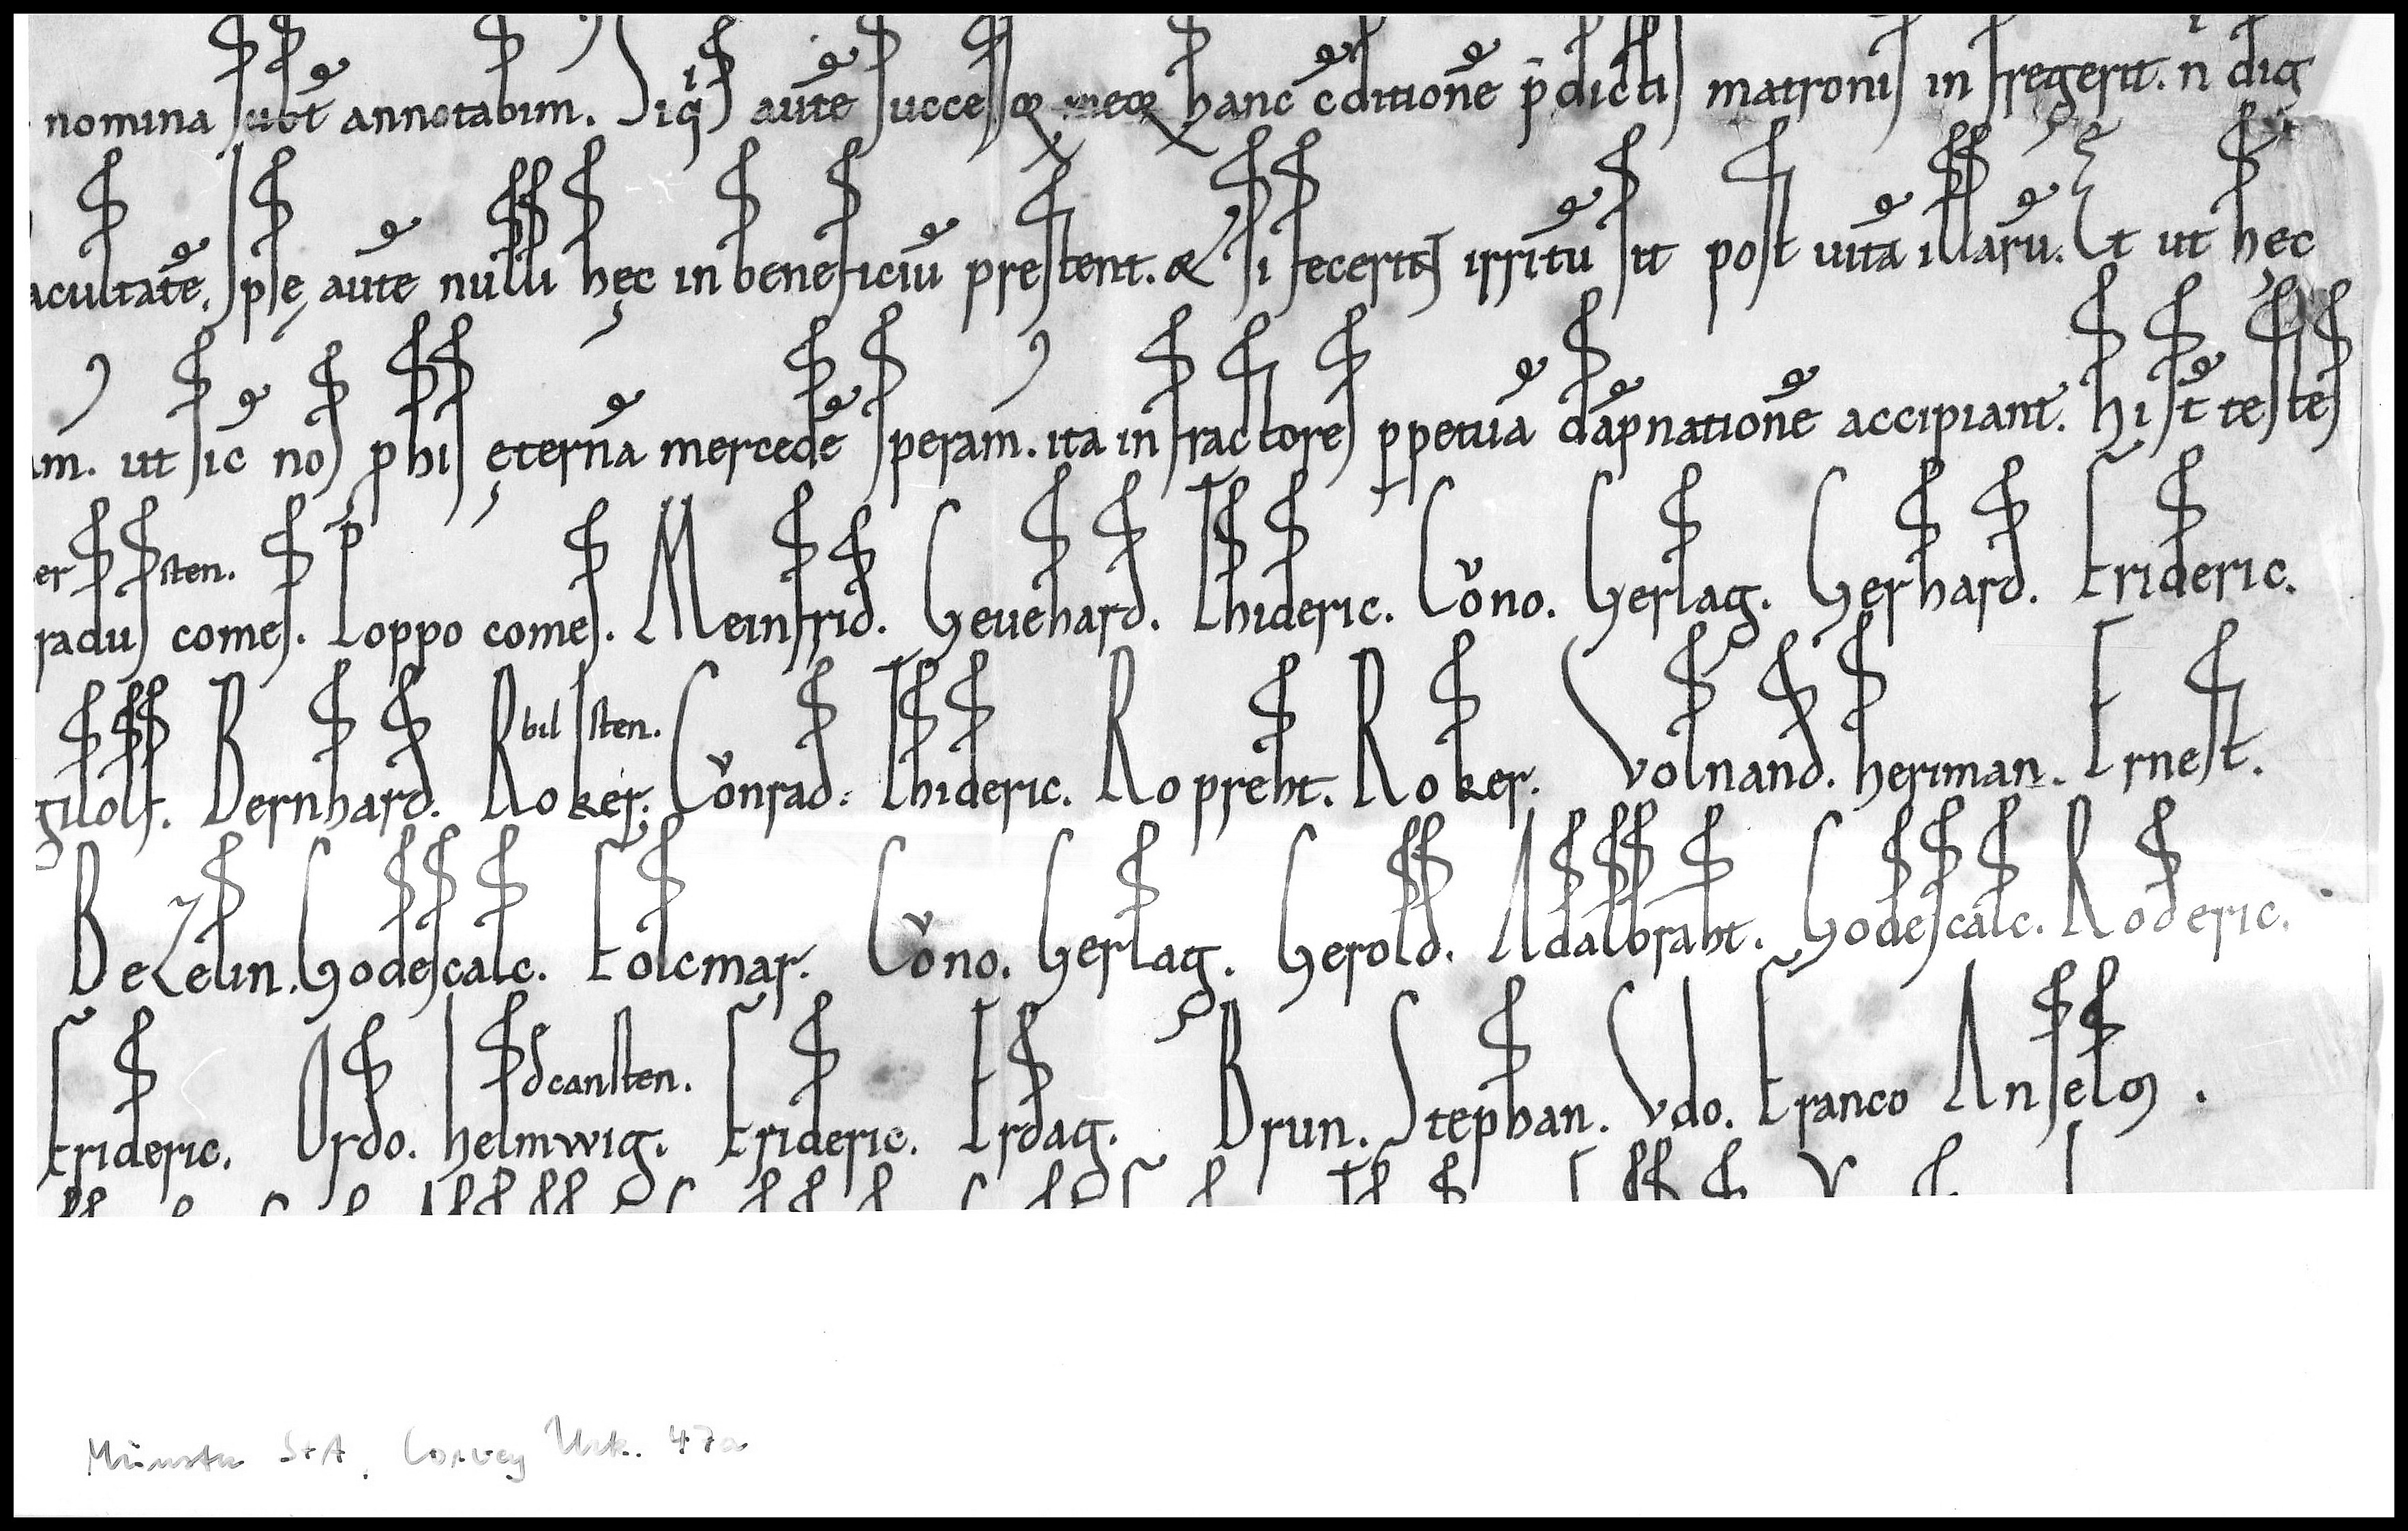 nomina subt̄ annotabim. Siqͥs aute̅ successoꝝ meoꝝ hanc c̅ditione̅ p̅dictis matronis infregerit. n̅ dig
acultate̅. Ipse̜ aute̅ nulli he̜c in beneficiu̅ prestent. & si fecerit irritu̅ sit post uita̅ illaru̅. Et ut he̜c
im. ut sic nos ꝓ his e̜terna̅ mercede̅ speram. ita infractores ꝑpetua̅ da̅pnatione̅ accipiant. hi st̅ testes
er sten.
radus comes. Poppo comes. Meinfrid. Geuehard. Thideric. Cᵒ̌no. Gerlag. Gerhard. Frideric.
bil sten.
gilolf. Bernhard. Roker. Cǒnrad. Thideric. Ropreht. Roker. Volnand. heriman. Ernest.
Bezelin. Godescalc. Folcmar. Cǒno. Gerlag. Gerold. Adalbraht. Godescalc. Roderic.
dcansten.
Frideric. Ordo. helmwig. Frideric. Erdag. Brun. Stephan. Vdo. Franco Anselm.
Münster StA, Corvey Urk. 47a